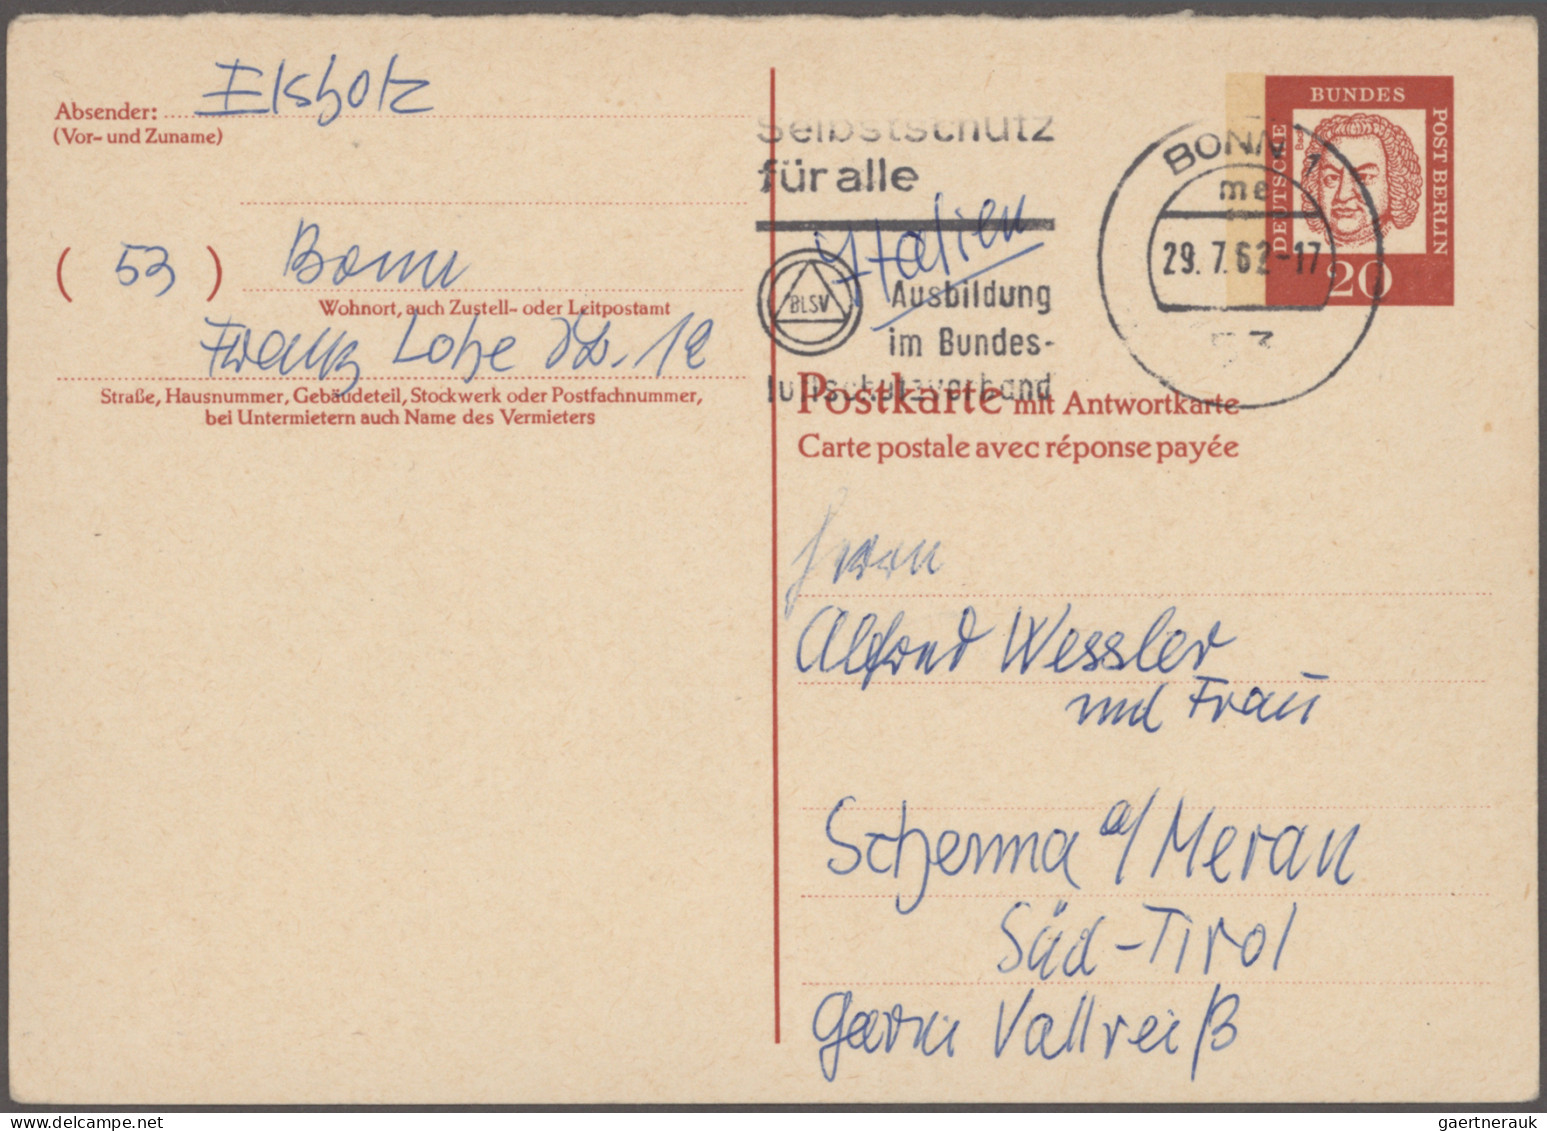 Absender: Elsholz
(Vor- und Zuname)
( 53 ) Bonn
Wohnort, auch Zustell- oder Leitpostamt
Franz Lohe Str. 12
Straße, Hausnummer, Gebäudeteil, Stockwerk oder Postfachnummer,
bei Untermietern auch Name des Vermieters
Selbstschutz
für alle
Italien
BLSV
Ausbildung
im Bundes-
luftschutzverband
BONN 1
me
29.7.62-17
53
DEUTSCHE
BUNDES
POST BERLIN
Bach
20
Postkarte mit Antwortkarte
Carte postale avec réponse payée
Herrn
Alfred Wessler
und Frau
Schenna a/Meran
Süd-Tirol
Garni Vallreiß
gaertnerauk